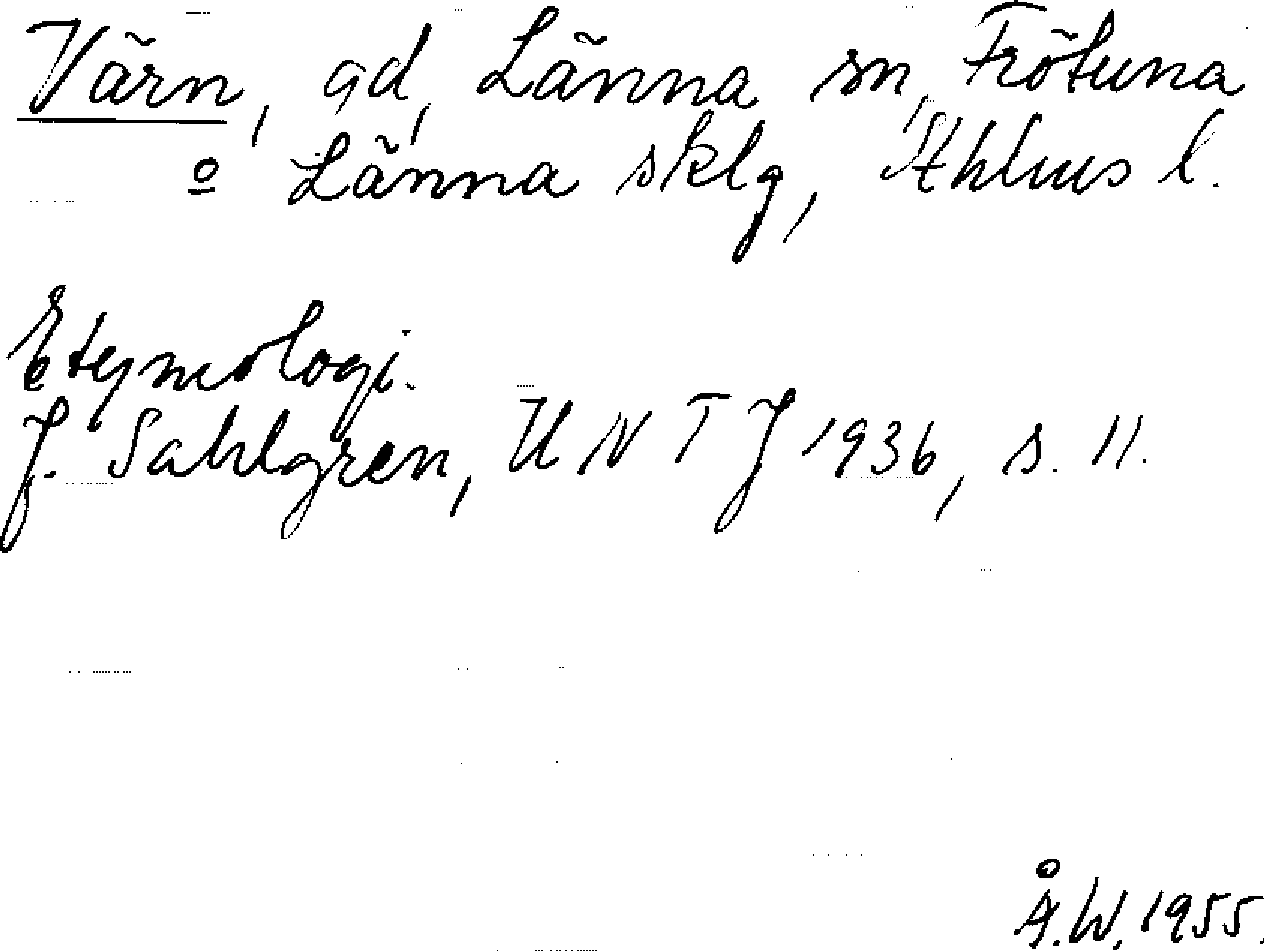 Värn, gd, Länna sn, Frötuna
o Länna sklg, Sthlms l.
Etymologi.
J. Sahlgren, UNTJ 1936, s. 11.
Å.W. 1955.